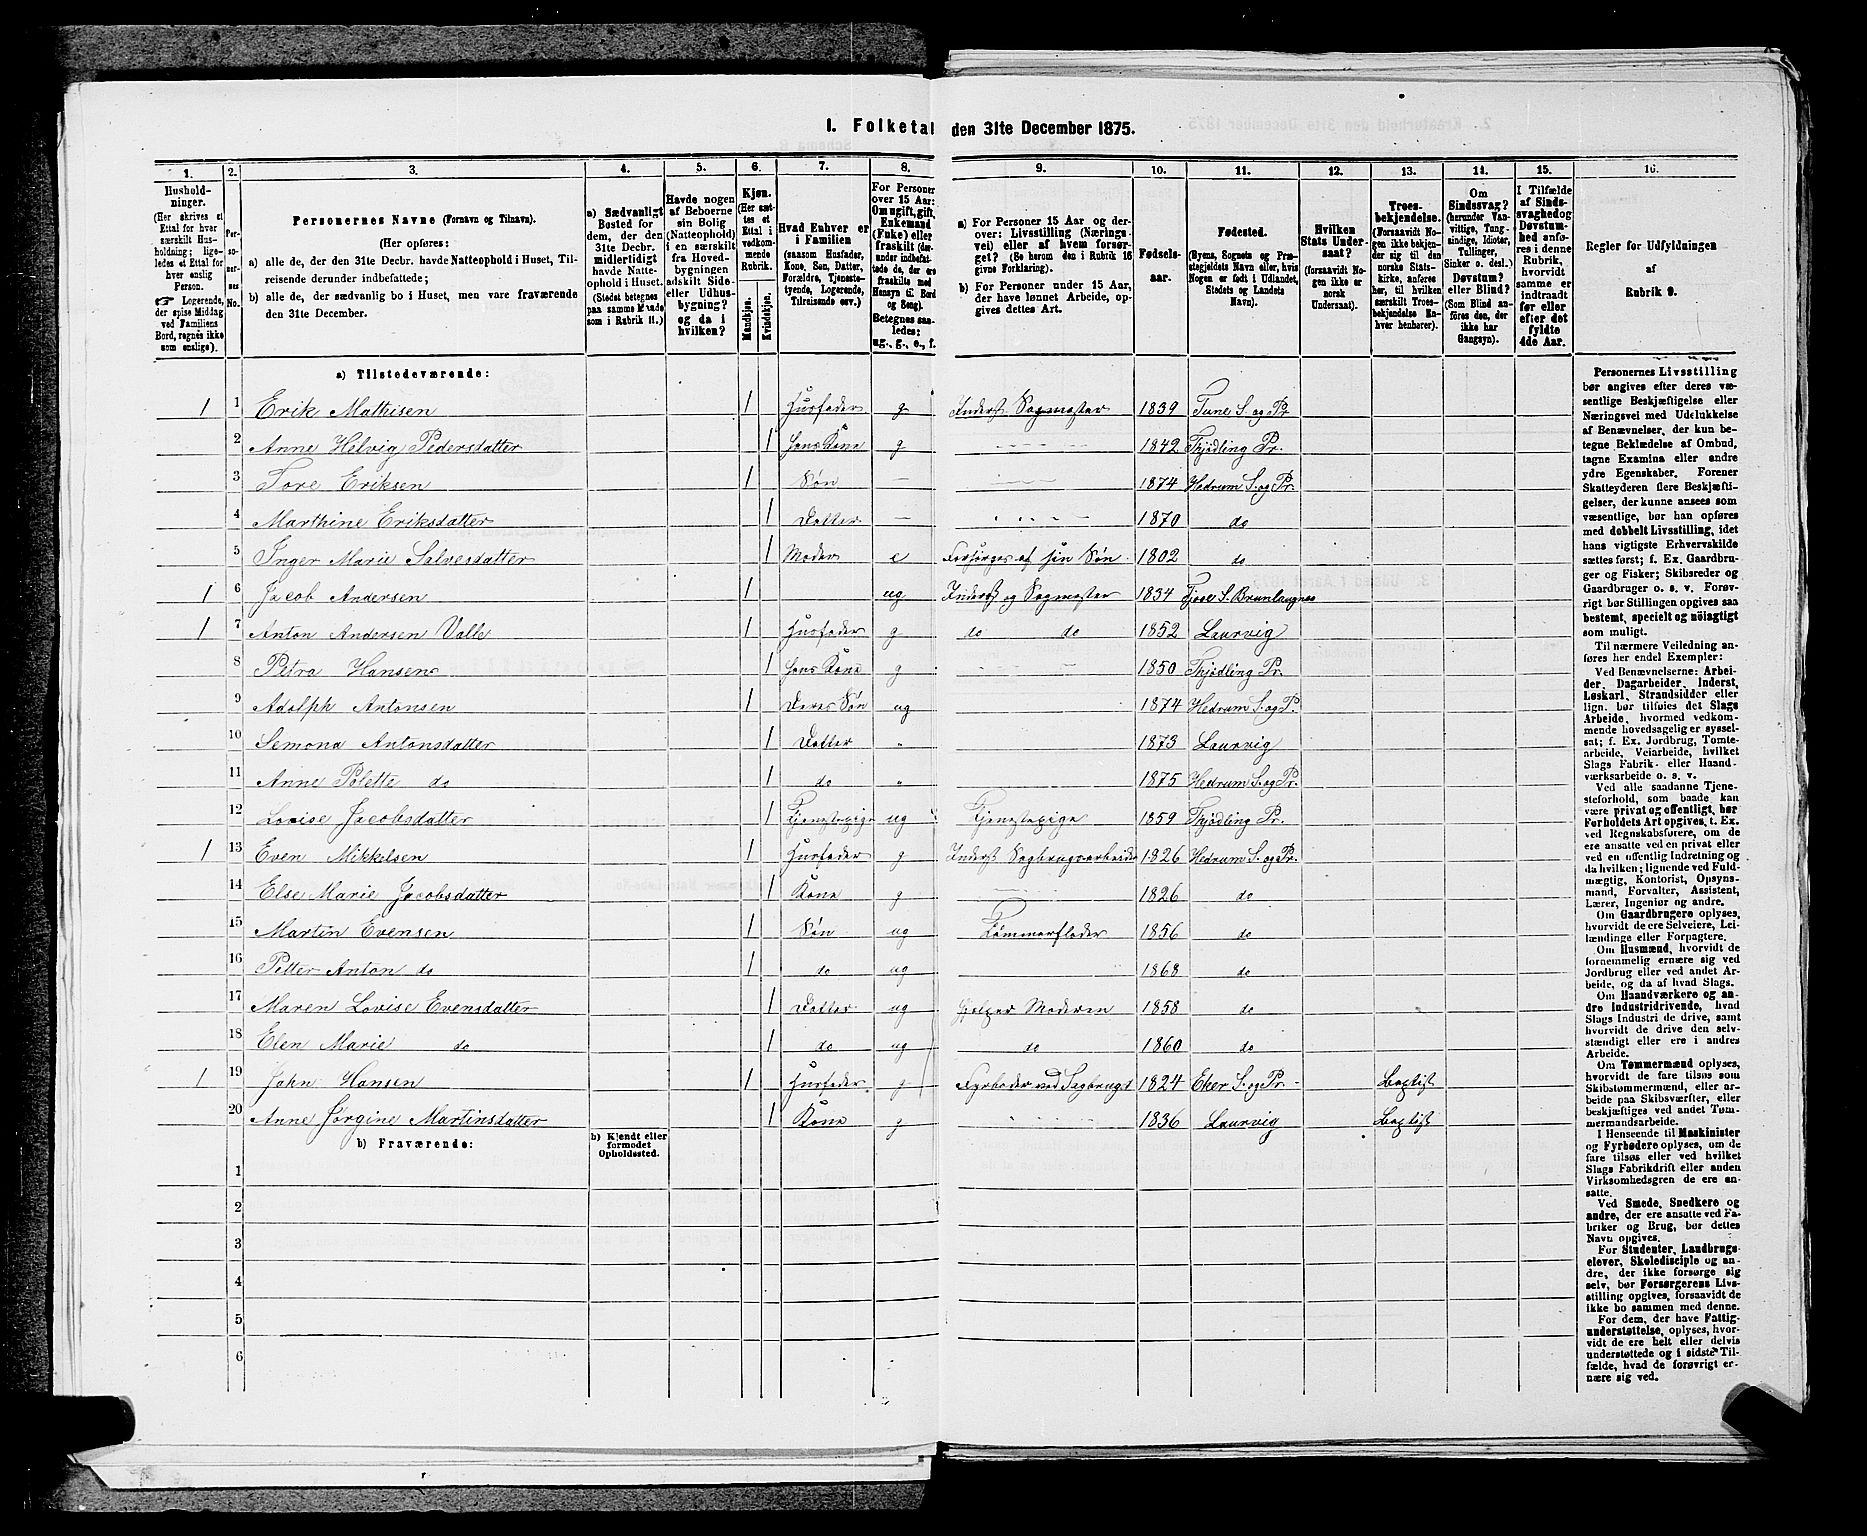 1. Folketal den 31te December 1875.
1. 2. 3. 4. 5. 6. 7. 8. 9. 10. 11. 12. 13. 14. 15. 16.
Hushold-
ninger.
(Her skrives et
Ettal for hver
særskilt Hus-
holdning; lige-
ledes et Ettal for
hver enslig
Person.
☞ Logerende,
der spise Middag
ved Familiens
Bord, regnes ikke
som enslige).
Per-
so-
ner-
nes
No.
Personernes Navne (Fornavn og Tilnavn).
(Her opføres:
a) alle de, der den 31te Decbr. havde Natteophold i Huset, Til-
reisende derunder indbefattede;
b) alle de, der sædvanlig bo i Huset, men vare fraværende
den 31te December.
a) Sædvanligt
Bosted for
dem, der den
31te Decbr.
midlertidigt
havde Natte-
ophold i Huset.
(Stedet betegnes
paa samme Maade
som i Rubrik 11.)
Havde nogen
af Beboerne
sin Bolig
(Natteophold)
i en særskilt
fra Hoved-
bygningen
adskilt Side-
eller Udhus-
bygning?
og da i
hvilken?
Kjøn.
(Her sæt-
tes et
Ettal i
vedkom-
mende
Rubrik.
Mandkjøn.
Kvindekjøn.
Hvad Enhver er
i Familien
(saasom Husfader,
Kone, Søn, Datter,
Forældre, Tjeneste-
tyende, Logerende,
Tilreisende osv.)
For Personer
over 15 Aar:
Om ugift, gift,
Enkemand
(Enke) eller
fraskilt (der-
under indbefat-
tede de, der ere
fraskilte med
Hensyn til Bord
og Seng).
Betegnes saa-
ledes:
ug., g., e., f.
a) For Personer 15 Aar og der-
over: Livsstilling (Nærings-
vei) eller af hvem forsør-
get? (Se herom den i Rubrik 16
givne Forklaring).
b) For Personer under 15 Aar,
der have lønnet Arbeide, op-
gives dettes Art.
Fødsels-
aar.
Fødested.
(Byens, Sognets og Præ-
stegjeldets Navn eller, hvis
Nogen er født i Udlandet,
Stedets og Landets
Navn).
Hvilken
Stats Under-
saat?
(forsaavidt No-
gen ikke er
norsk
Undersaat).
Troes-
bekjendelse.
(Forsaavidt No-
gen ikke bekjen-
der sig til den
norske Stats-
kirke, anføres
her, til hvilken
særskilt Troes-
bekjendelse En-
hver henhører).
Om
Sindssvag?
(herunder Van-
vittige, Tung-
sindige, Idioter,
Tullinger,
Sinker o. desl.)
Døvstum?
eller Blind?
(Som Blind an-
føres den, der
ikke har
Gangsyn).
I Tilfælde
af Sinds-
svaghed og
Døvstum-
hed anfø-
res i denne
Rubrik,
hvorvidt
samme er
indtraadt
før eller
efter det
fyldte
4de Aar.
Regler for Udfyldningen
af
Rubrik 9.
a) Tilstedeværende:
1 1 Erik Mathisen 1 Husfader g Inderst Sagmester 1839 Tune S. og Pr
2 Anne Helvig Pedersdatter 1 Hans Kone g 1842 Thjødling Pr.
3 Tore Eriksen 1 Søn 1874 Hedrum S. og Pr.
4 Marthine Eriksdatter 1 Datter 1870 do
5 Inger Marie Salvesdatter 1 Moder e Forsørges af sin Søn 1802 do
1 6 Jacob Andersen 1 ug Inderst og Sagmester 1834 Tjose S. Brunlaugnes
1 7 Anton Andersen Valle 1 Husfader g do do 1852 Laurvig
8 Petra Hansen 1 Hans Kone g 1850 Thjødling Pr.
9 Adolph Antonsen 1 Deres Søn ug 1874 Hedrum S. og P.
10 Semona Antonsdatter 1 Datter " 1873 Laurvig
11 Anne Polette do 1 do " 1875 Hedrum S. og Pr.
12 Lovise Jacobsdatter 1 Tjenestepige ug Tjenestepige 1859 Thjødling Pr.
1 13 Even Mikkelsen 1 Husfader g Inderst Sagbrugsarbeider 1826 Hedrum S. og Pr.
14 Else Marie Jacobsdatter 1 Kone g 1826 do
15 Martin Evensen 1 Søn ug Tømmerfløder 1856 do
16 Petter Anton do 1 do ug 1868 do
17 Maren Lovise Evensdatter 1 Datter ug Hjelper Moderen 1858 do
18 Elen Marie do 1 do ug do 1860 do
1 19 John Hansen 1 Husfader g Fyrbøder ved Sagbruget 1824 Eker S. og Pr. Baptist
20 Anne Jørgine Martinsdatter 1 Kone g 1836 Laurvig Baptist
b) Fraværende:
b) Kjendt eller
formodet
Opholdssted.
1
2
3
4
5
6
Personernes Livsstilling
bør angives efter deres væ-
sentlige Beskjæftigelse eller
Næringsvei med Udelukkelse
af Benævnelser, der kun be-
tegne Beklædelse af Ombud,
tagne Examina eller andre
ydre Egenskaber. Forener
Skatteyderen flere Beskjæfti-
gelser, der kunne ansees som
væsentlige, bør han opføres
med dobbelt Livsstilling, idet
hans vigtigste Erhvervskilde
sættes først; f. Ex. Gaardbru-
ger og Fisker; Skibsreder og
Gaardbruger o. s. v. Forøv-
rigt bør Stillingen opgives saa
bestemt, specielt og nøiagtigt
som muligt.
Til nærmere Veiledning an-
føres her endel Exempler:
Ved Benævnelserne: Arbei-
der, Dagarbeider, Inderst,
Løskarl, Strandsidder eller
lign. bør tilføies det Slags
Arbeide, hvormed vedkom-
mende hovedsagelig er syssel-
sat; f. Ex. Jordbrug, Tomte-
arbeide, Veiarbeide, hvilket
Slags Fabrik- eller Haand-
værksarbeide o. s. v.
Ved alle saadanne Tjene-
steforhold, som baade kan
være privat og offentligt, bør
Forholdets Art opgives, t. Ex.
ved Regnskabsførere, om de
ere ansatte ved en privat eller
ved en offentlig Indretning og
da hvilken; lignende ved Fuld-
mægtig, Kontorist, Opsyns-
mand, Forvalter, Assistent,
Lærer, Ingeniør og andre.
Om Gaardbrugere oplyses,
hvorvidt de ere Selveiere, Lei-
lændinge eller Forpagtere.
Om Husmænd, hvorvidt de
fornemmelig ernære sig ved
Jordbrug eller ved andet Ar-
beide, og da af hvad Slags.
Om Haandværkere og an-
dre Industridrivende, hvad
Slags Industri de drive, samt
hvorvidt de drive den selv-
stændigt eller ere i andres
Arbeide.
Om Tømmermænd oplyses,
hvorvidt de fare tilsøs som
Skibstømmermænd, eller ar-
beide paa Skibsværfter, eller
beskjæftiges ved andet Tøm-
mermandsarbeide.
I Henseende til Maskinister
og Fyrbødere oplyses, om de
fare tilsøs eller ved hvilket
Slags Fabrikdrift eller anden
Virksomhedsgren de ere an-
satte.
Ved Smede, Snedkere og
andre, der ere ansatte ved Fa-
briker og Brug, bør dettes
Navn opgives.
For Studenter, Landbrugs-
elever, Skoledisciple og an-
dre, der ikke forsørge sig
selv, bør Forsørgerens Livs-
stilling opgives, forsaavidt de
ikke bo sammen med denne.
For dem, der have Fattig-
understøttelse, oplyses, hvor-
vidt de ere helt eller delvis
understøttede og i sidste Til-
fælde, hvad de forøvrigt er-
nære sig ved.